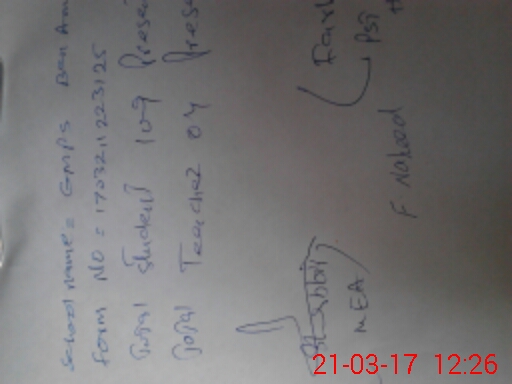 School name = GMPS Ban
Form NO = 170321223125
Total Student 109 Present
Total Teacher 04 Present
PST
F Naheed
MEA
21-03-17 12:26